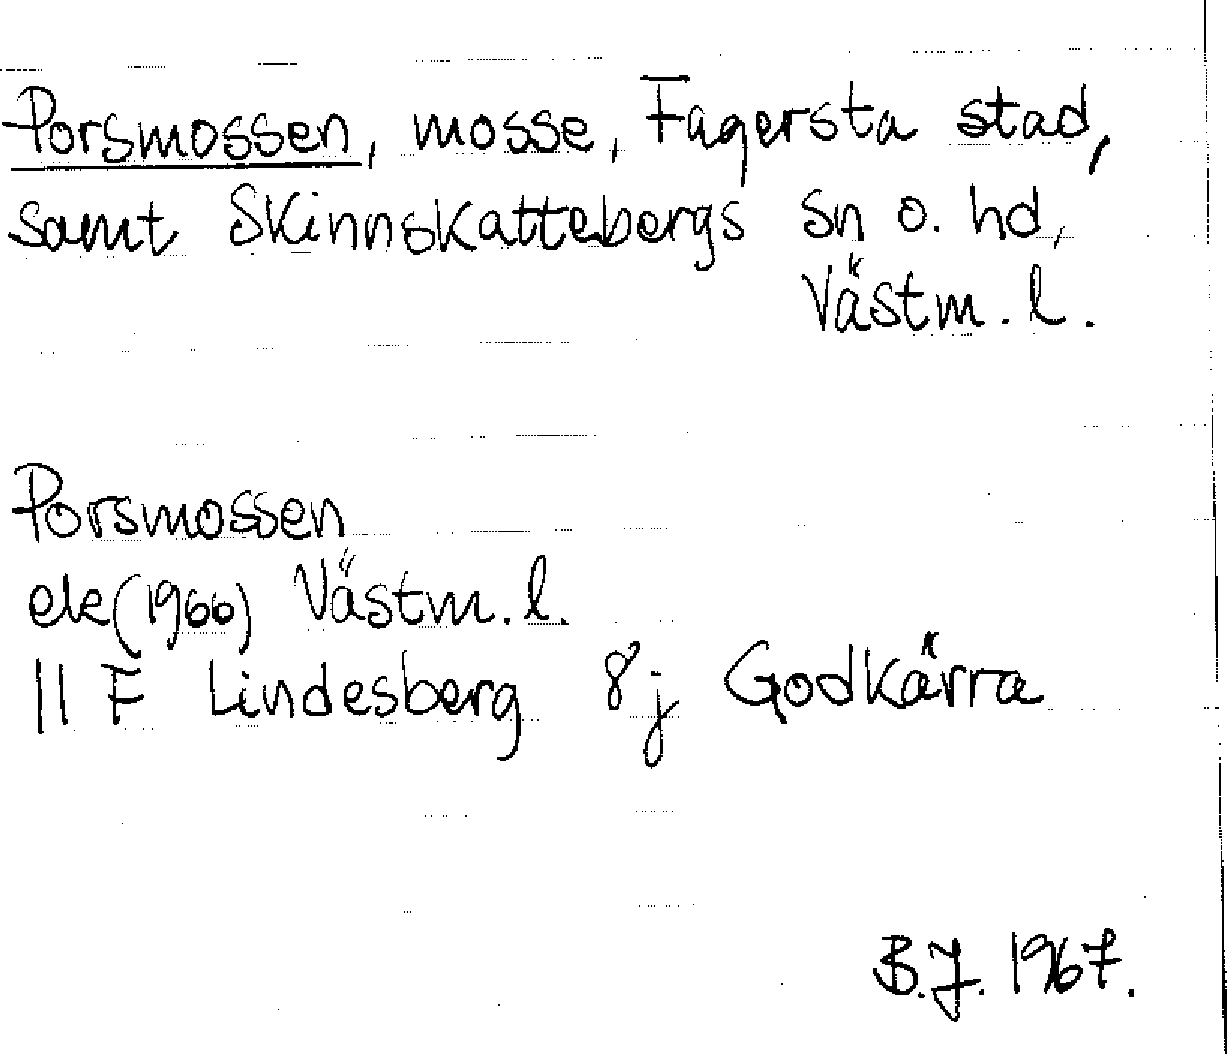 Porsmossen, mosse, Fagersta stad,
samt Skinnskattebergs sn o. hd,
Västm. l.
Porsmossen
ek (1966) Västm. l.
11 F Lindesberg 8j Godkärra
B.J. 1967.